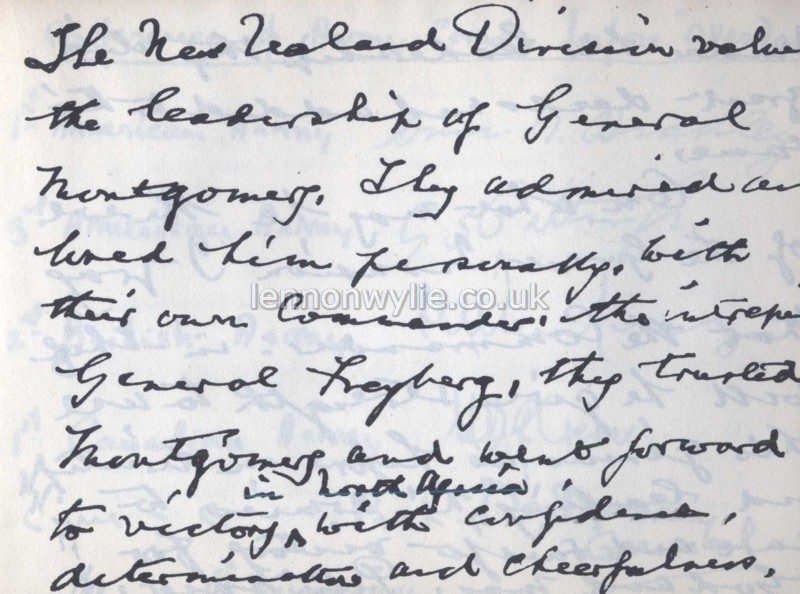 The New Zealand Division value
the leadership of General
Montgomery. They admired an
loved him personally. With
lennonwylie.co.uk
their own Commander, the intrepi
General Freyberg, they trusted
Montgomery and went forward
in North Africa
to victory, with confidence,
determination and cheerfulness.